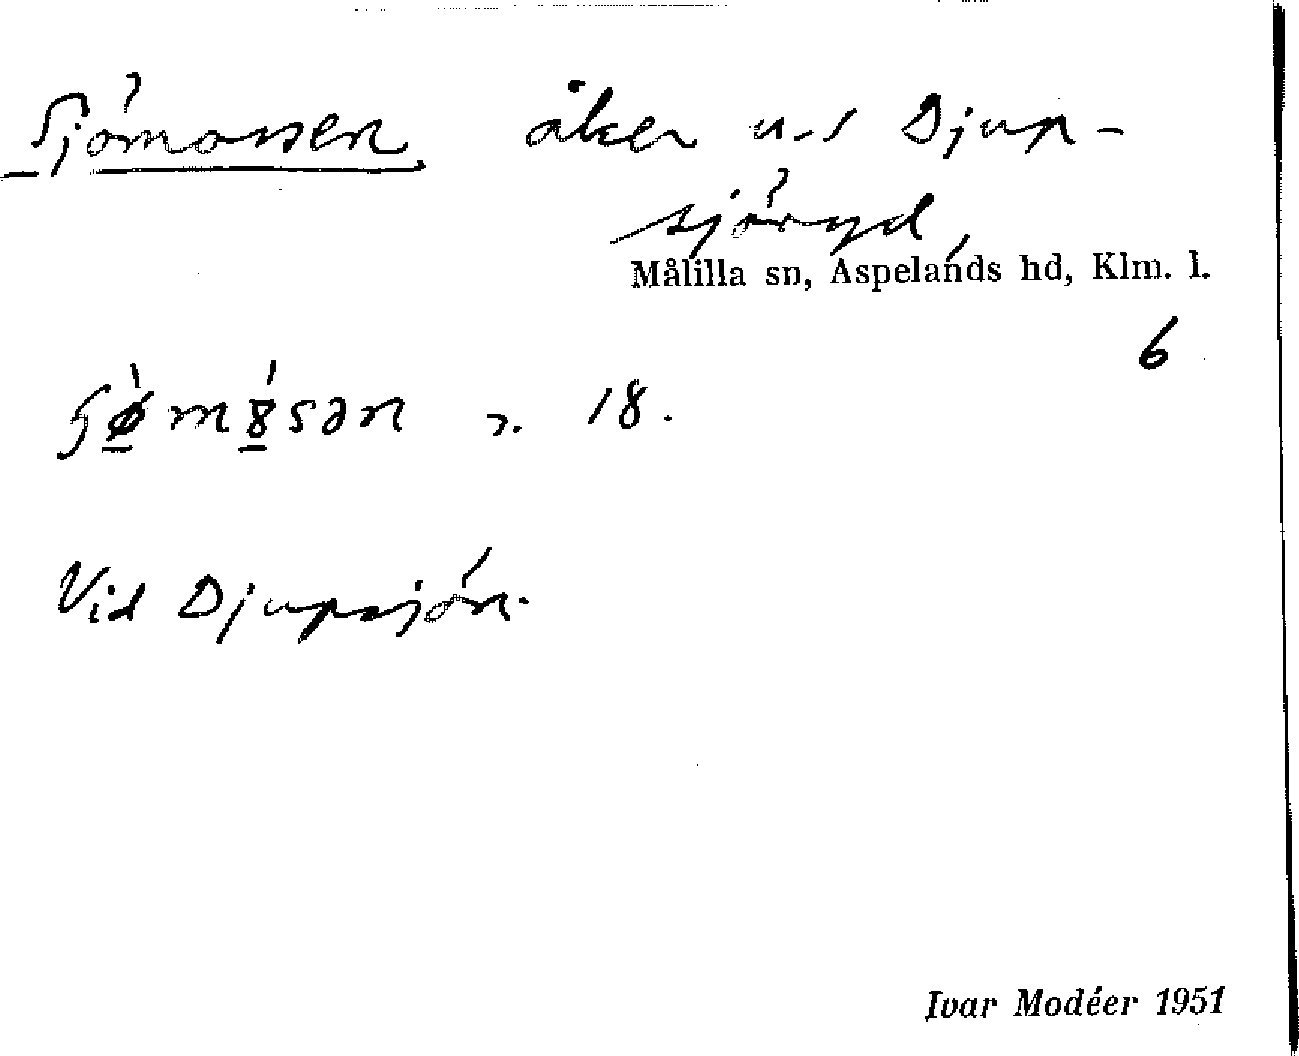 Sjömossen åker u-s Djup-
sjöryd,
Målilla sn, Aspelands hd, Klm. l.
6
18.
Vid Djupsjön.
Ivar Modéer 1951